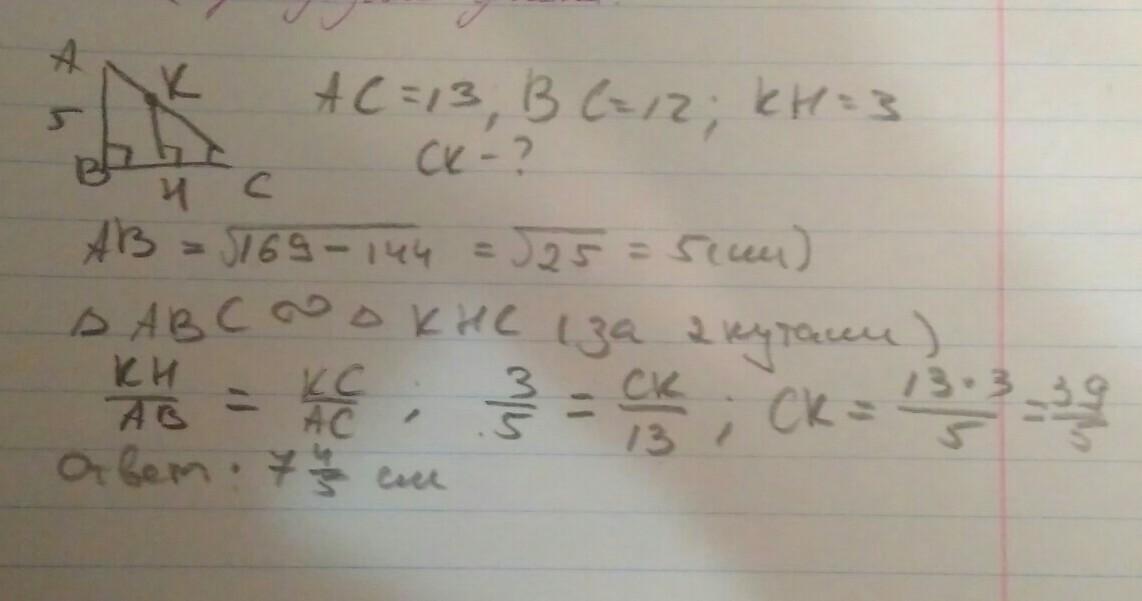 A
K
5
B
H
C
AC = 13, BC = 12; KH = 3
CK - ?
AB = √169 - 144 = √25 = 5 (см)
△ ABC ∾ △ KHC (за 2 кутами)
KH/AB = KC/AC ; 3/5 = CK/13 ; CK = 13·3/5 = 39/5
Ответ: 7 4/5 см